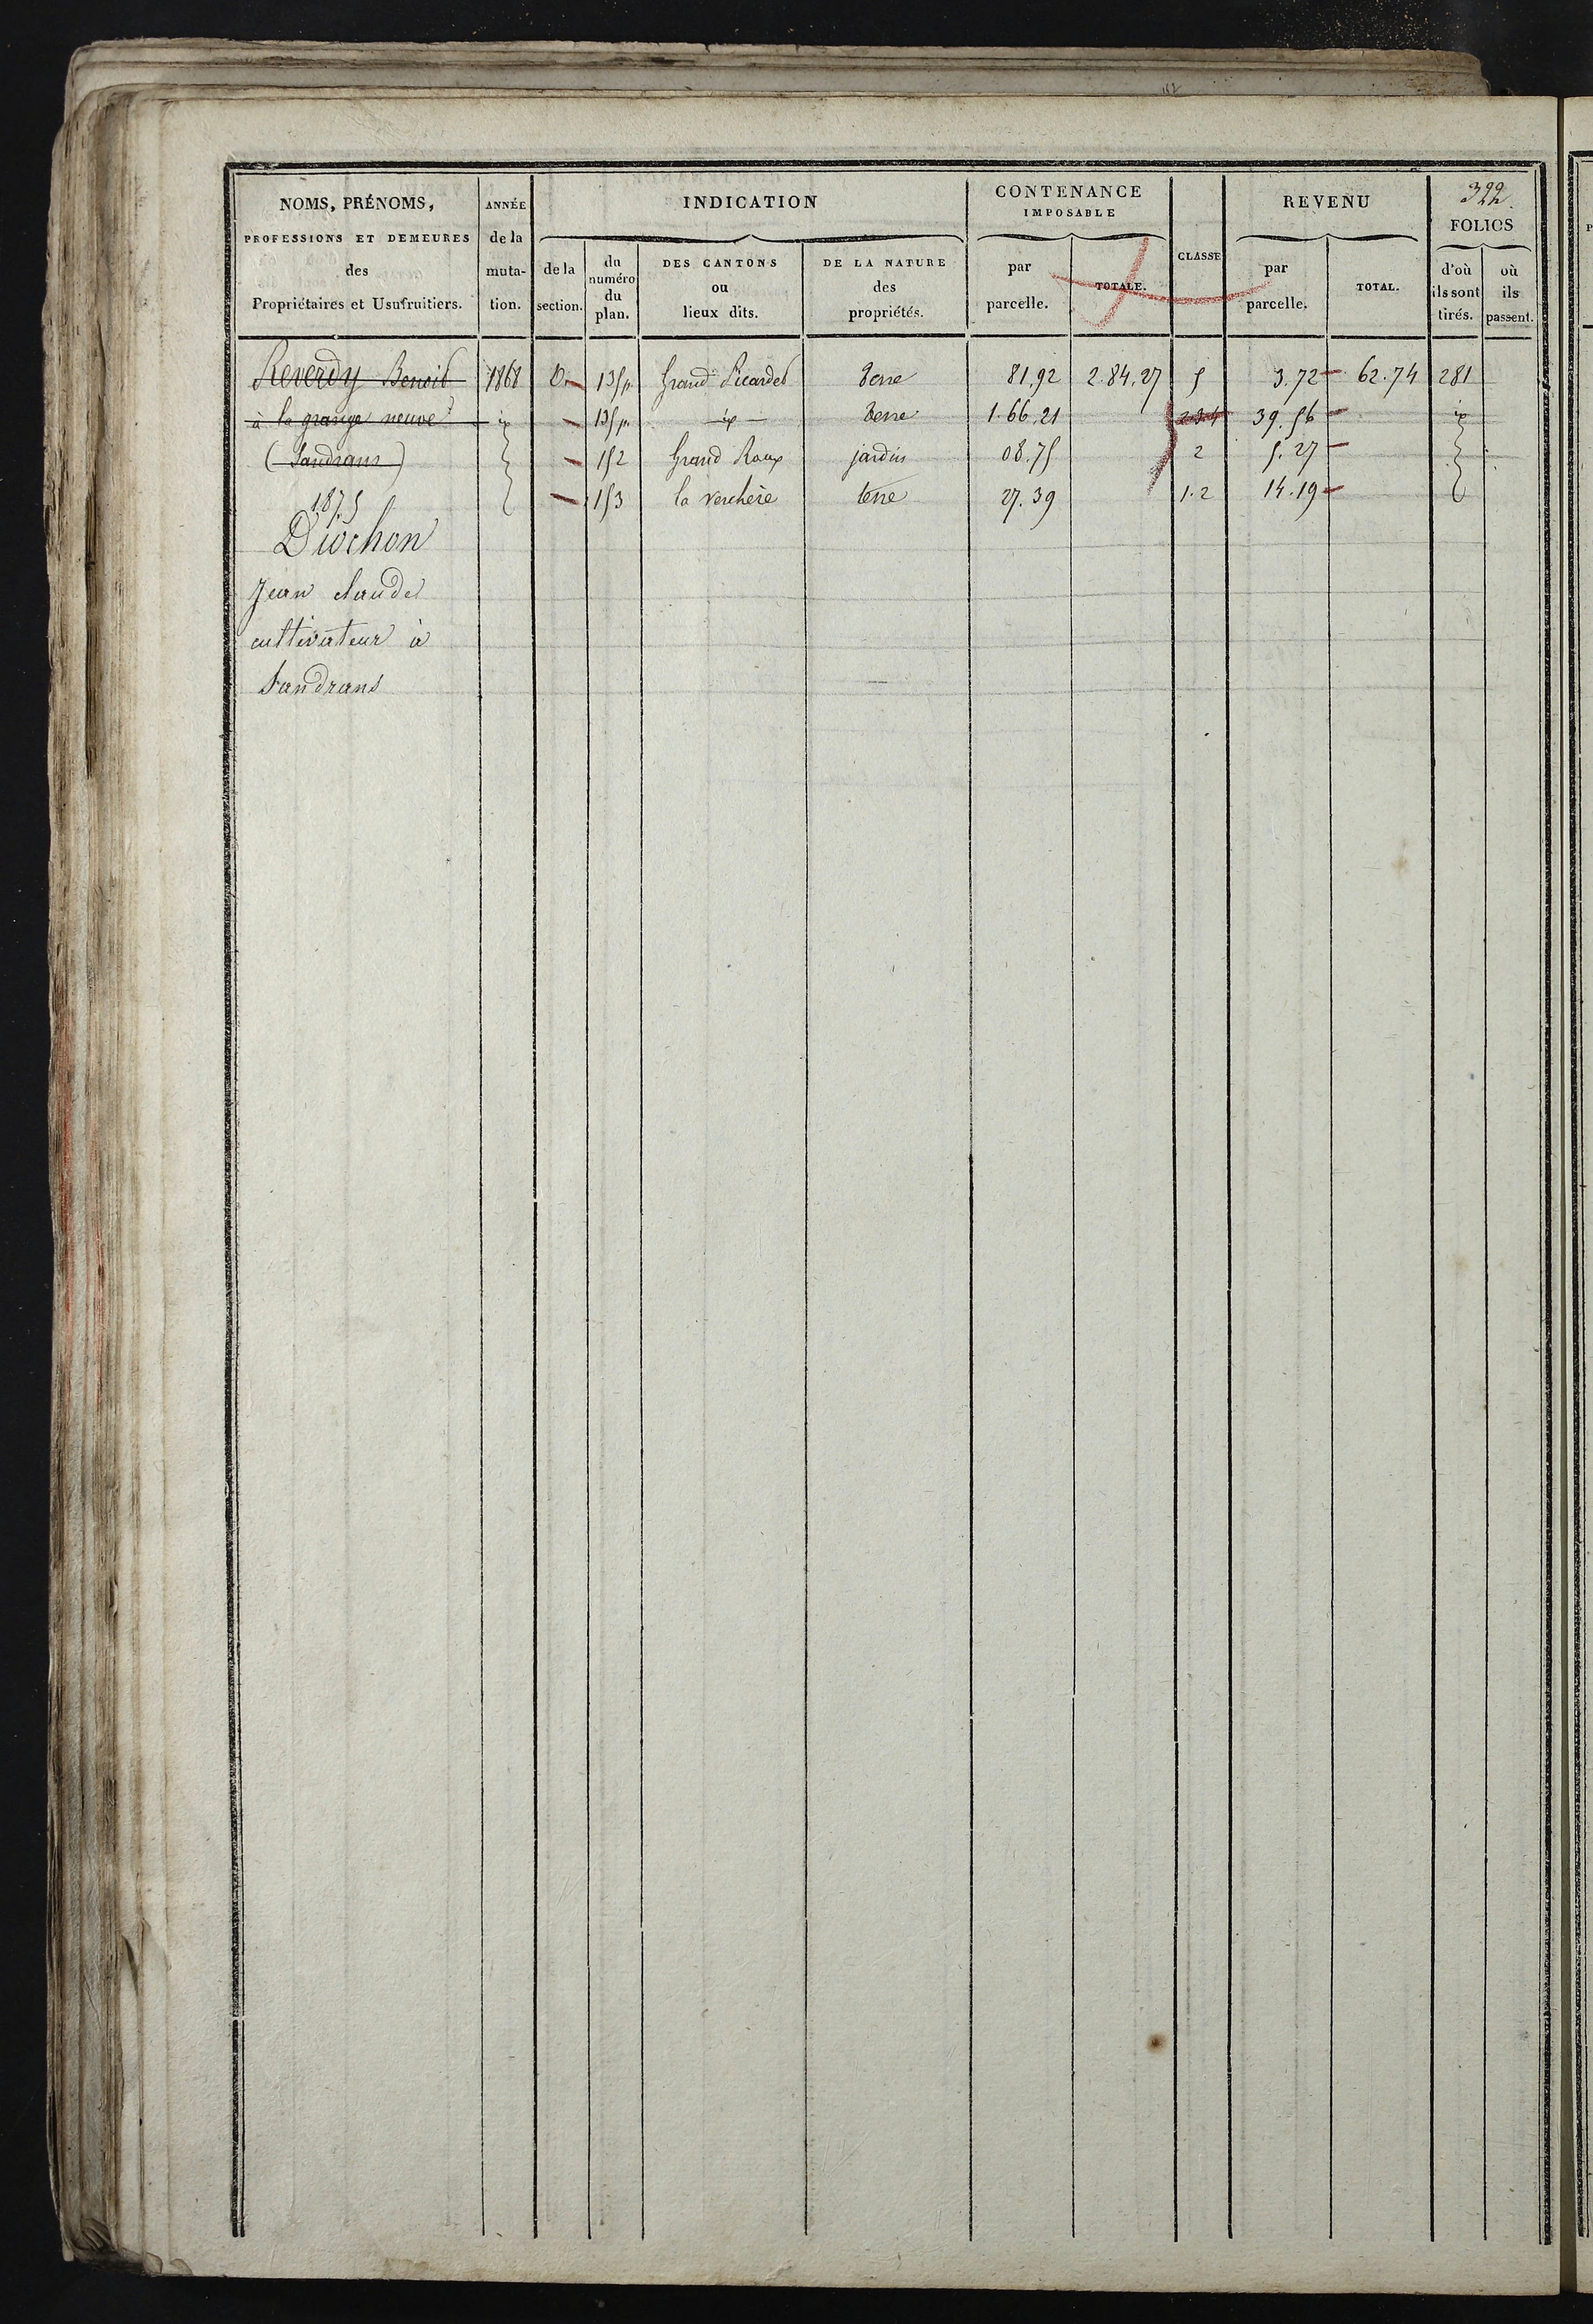 NOMS, PRÉNOMS,
PROFESSIONS ET DEMEURES
des
Propriétaires et Usufruitiers.
ANNÉE
de la
muta-
tion.
INDICATION
de la
section.
du
numéro
du
plan.
DES CANTONS
ou
lieux dits.
DE LA NATURE
des
propriétés.
CONTENANCE
IMPOSABLE
par
parcelle.
TOTALE.
CLASSE
REVENU
par
parcelle.
TOTAL.
322
FOLIOS
d'où
ils sont
tirés.
où
ils
passent.
Reverdy Benoit 1868 D 135p. Grand Picardet terre 81.92 2.84.27 5 3.72 62.74 281
à la grange neuve 135p. terre 1.66.21 2.3.4 39.56
(Sandrans) 152 Grand Roux jardin 08.75 2 5.27
153 la verchère terre 27.39 1.2 14.19
1875
Diochon
Jean claude
cultivateur à
Sandrans